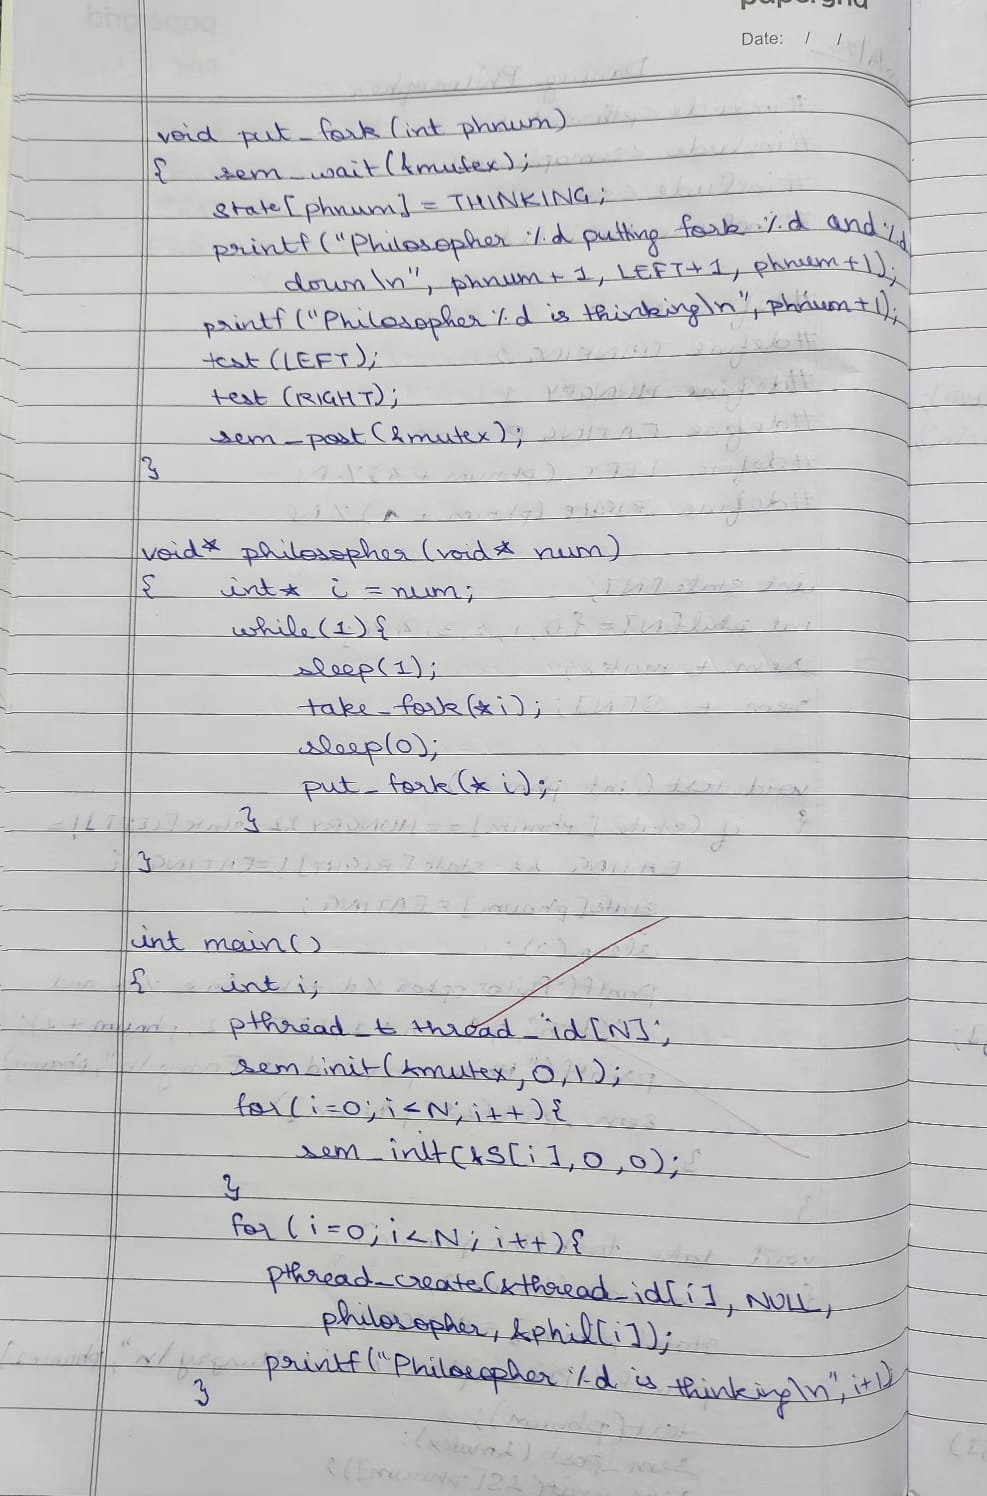 Date: / /
void put_fork (int phnum)
{ sem_wait(&mutex);
state[phnum] = THINKING;
printf("Philosopher %d putting fork %d and %d
down\n", phnum + 1, LEFT+1, phnum+1);
printf("Philosopher %d is thinking\n", phnum+1);
test (LEFT);
test (RIGHT);
sem_post(&mutex);
}
void* philosopher (void* num)
{ int* i = num;
while(1){
sleep(1);
take_fork(*i);
sleep(0);
put_fork(*i);
}
}
int main()
{ int i;
pthread_t thread_id[N];
sem_init(&mutex, 0, 1);
for(i=0; i<N; i++){
sem_init(&S[i], 0, 0);
}
for (i=0; i<N; i++){
pthread_create(&thread_id[i], NULL,
philosopher, &phil[i]);
printf("Philosopher %d is thinking\n", i+1);
}